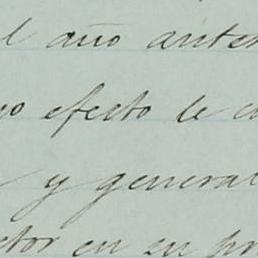 l año anter
yo efecto le c
y general
ctor en su pr